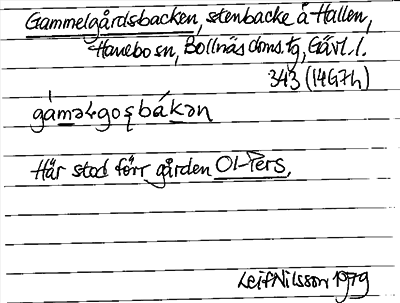 Gammelgårdsbacken, stenbacke å Hallen,
Hanebo sn, Bollnäs doms.tg, Gävl. l.
343 (14G7h)
Här stod förr gården Ol-Pers.
Leif Nilsson 1979